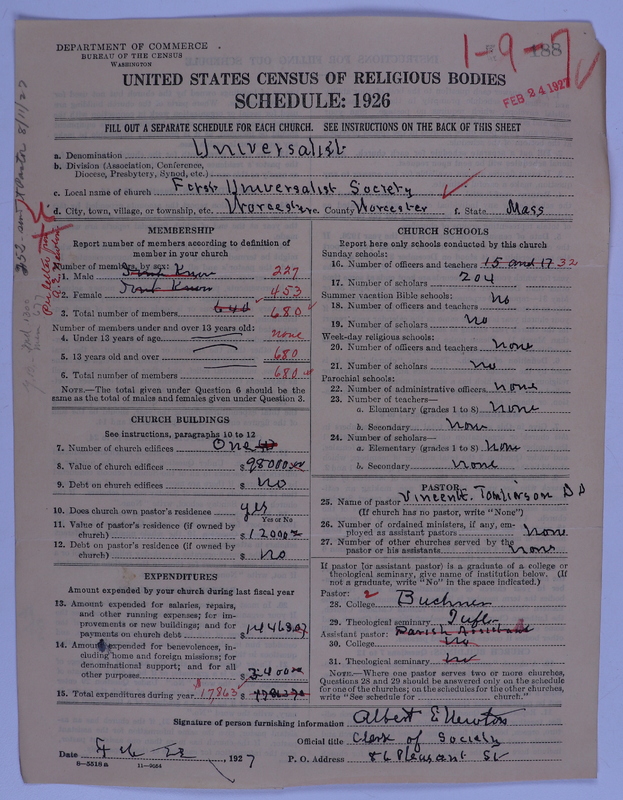 DEPARTMENT OF COMMERCE
BUREAU OF THE CENSUS
WASHINGTON
1-9-7
188
FEB 24 1927
UNITED STATES CENSUS OF RELIGIOUS BODIES
SCHEDULE: 1926
FILL OUT A SEPARATE SCHEDULE FOR EACH CHURCH. SEE INSTRUCTIONS ON THE BACK OF THIS SHEET
a. Denomination Universalist
b. Division (Association, Conference, Diocese, Presbytery, Synod, etc.)
c. Local name of church First Universalist Society
d. City, town, village, or township, etc. Worcester e. County Worcester f. State Mass
MEMBERSHIP
Report number of members according to definition of member in your church
Number of members, by sex:
1. Male Dont Know 227
2. Female Dont Know 453
3. Total number of members 640 680
Number of members under and over 13 years old:
4. Under 13 years of age none
5. 13 years old and over 680
6. Total number of members 680
NOTE.—The total given under Question 6 should be the same as the total of males and females given under Question 3.
CHURCH BUILDINGS
See instructions, paragraphs 10 to 12
7. Number of church edifices One
8. Value of church edifices $ 98000.00
9. Debt on church edifices $ No
10. Does church own pastor's residence yes
Yes or No
11. Value of pastor's residence (if owned by church) $ 12000
12. Debt on pastor's residence (if owned by church) $ No
EXPENDITURES
Amount expended by your church during last fiscal year
13. Amount expended for salaries, repairs, and other running expenses; for improvements or new buildings; and for payments on church debt $
14. Amount expended for benevolences, including home and foreign missions; for denominational support; and for all other purposes $ 3400
15. Total expenditures during year $ 17863
CHURCH SCHOOLS
Report here only schools conducted by this church
Sunday schools:
16. Number of officers and teachers 15 and 17 32
17. Number of scholars 204
Summer vacation Bible schools:
18. Number of officers and teachers No
19. Number of scholars No
Week-day religious schools:
20. Number of officers and teachers None
21. Number of scholars No
Parochial schools:
22. Number of administrative officers None
23. Number of teachers—
a. Elementary (grades 1 to 8) None
b. Secondary None
24. Number of scholars—
a. Elementary (grades 1 to 8) None
b. Secondary None
PASTOR
25. Name of pastor Vincent E. Tomlinson D D
(If church has no pastor, write "None")
26. Number of ordained ministers, if any, employed as assistant pastors None
27. Number of other churches served by the pastor or his assistants None
If pastor [or assistant pastor] is a graduate of a college or theological seminary, give name of institution below. (If not a graduate, write "No" in the space indicated.)
Pastor:
28. College Buchner
29. Theological seminary Tufts
Assistant pastor: Parish Assistant
30. College No
31. Theological seminary No
NOTE.—Where one pastor serves two or more churches, Questions 28 and 29 should be answered only on the schedule for one of the churches; on the schedules for the other churches, write "See schedule for church."
Signature of person furnishing information Albert E Newton
Official title Clerk of Society
Date , 1927
P. O. Address 86 Pleasant St
8—5518a 11—9054